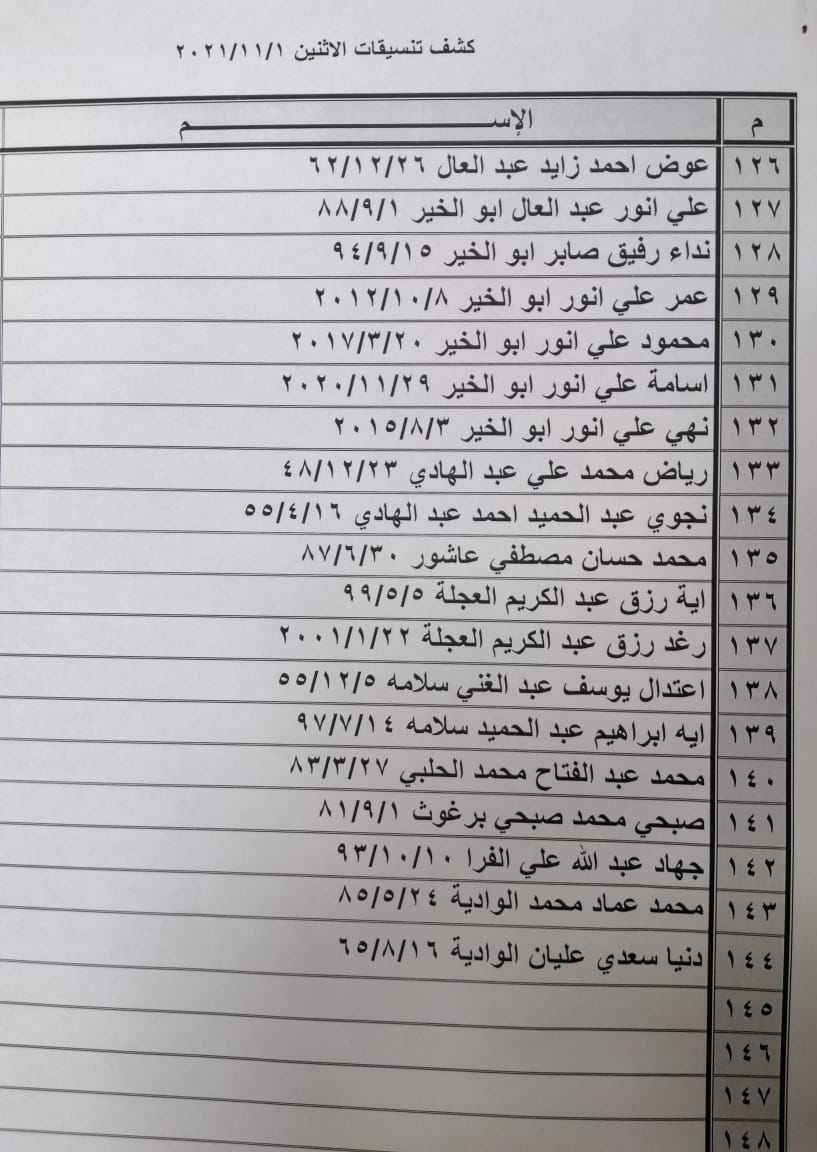 كشف تنسيقات الاثنين ٢٠٢١/١١/١
م الإســـــــــــــــــــــــــــم
١٢٦ عوض احمد زايد عبد العال ٦٢/١٢/٢٦
١٢٧ علي انور عبد العال ابو الخير ٨٨/٩/١
١٢٨ نداء رفيق صابر ابو الخير ٩٤/٩/١٥
١٢٩ عمر علي انور ابو الخير ٢٠١٢/١٠/٨
١٣٠ محمود علي انور ابو الخير ٢٠١٧/٣/٢٠
١٣١ اسامة علي انور ابو الخير ٢٠٢٠/١١/٢٩
١٣٢ نهي علي انور ابو الخير ٢٠١٥/٨/٣
١٣٣ رياض محمد علي عبد الهادي ٤٨/١٢/٢٣
١٣٤ نجوي عبد الحميد احمد عبد الهادي ٥٥/٤/١٦
١٣٥ محمد حسان مصطفي عاشور ٨٧/٦/٣٠
١٣٦ اية رزق عبد الكريم العجلة ٩٩/٥/٥
١٣٧ رغد رزق عبد الكريم العجلة ٢٠٠١/١/٢٢
١٣٨ اعتدال يوسف عبد الغني سلامه ٥٥/١٢/٥
١٣٩ ايه ابراهيم عبد الحميد سلامه ٩٧/٧/١٤
١٤٠ محمد عبد الفتاح محمد الحلبي ٨٣/٣/٢٧
١٤١ صبحي محمد صبحي برغوث ٨١/٩/١
١٤٢ جهاد عبد الله علي الفرا ٩٣/١٠/١٠
١٤٣ محمد عماد محمد الوادية ٨٥/٥/٢٤
١٤٤ دنيا سعدي عليان الوادية ٦٥/٨/١٦
١٤٥
١٤٦
١٤٧
١٤٨